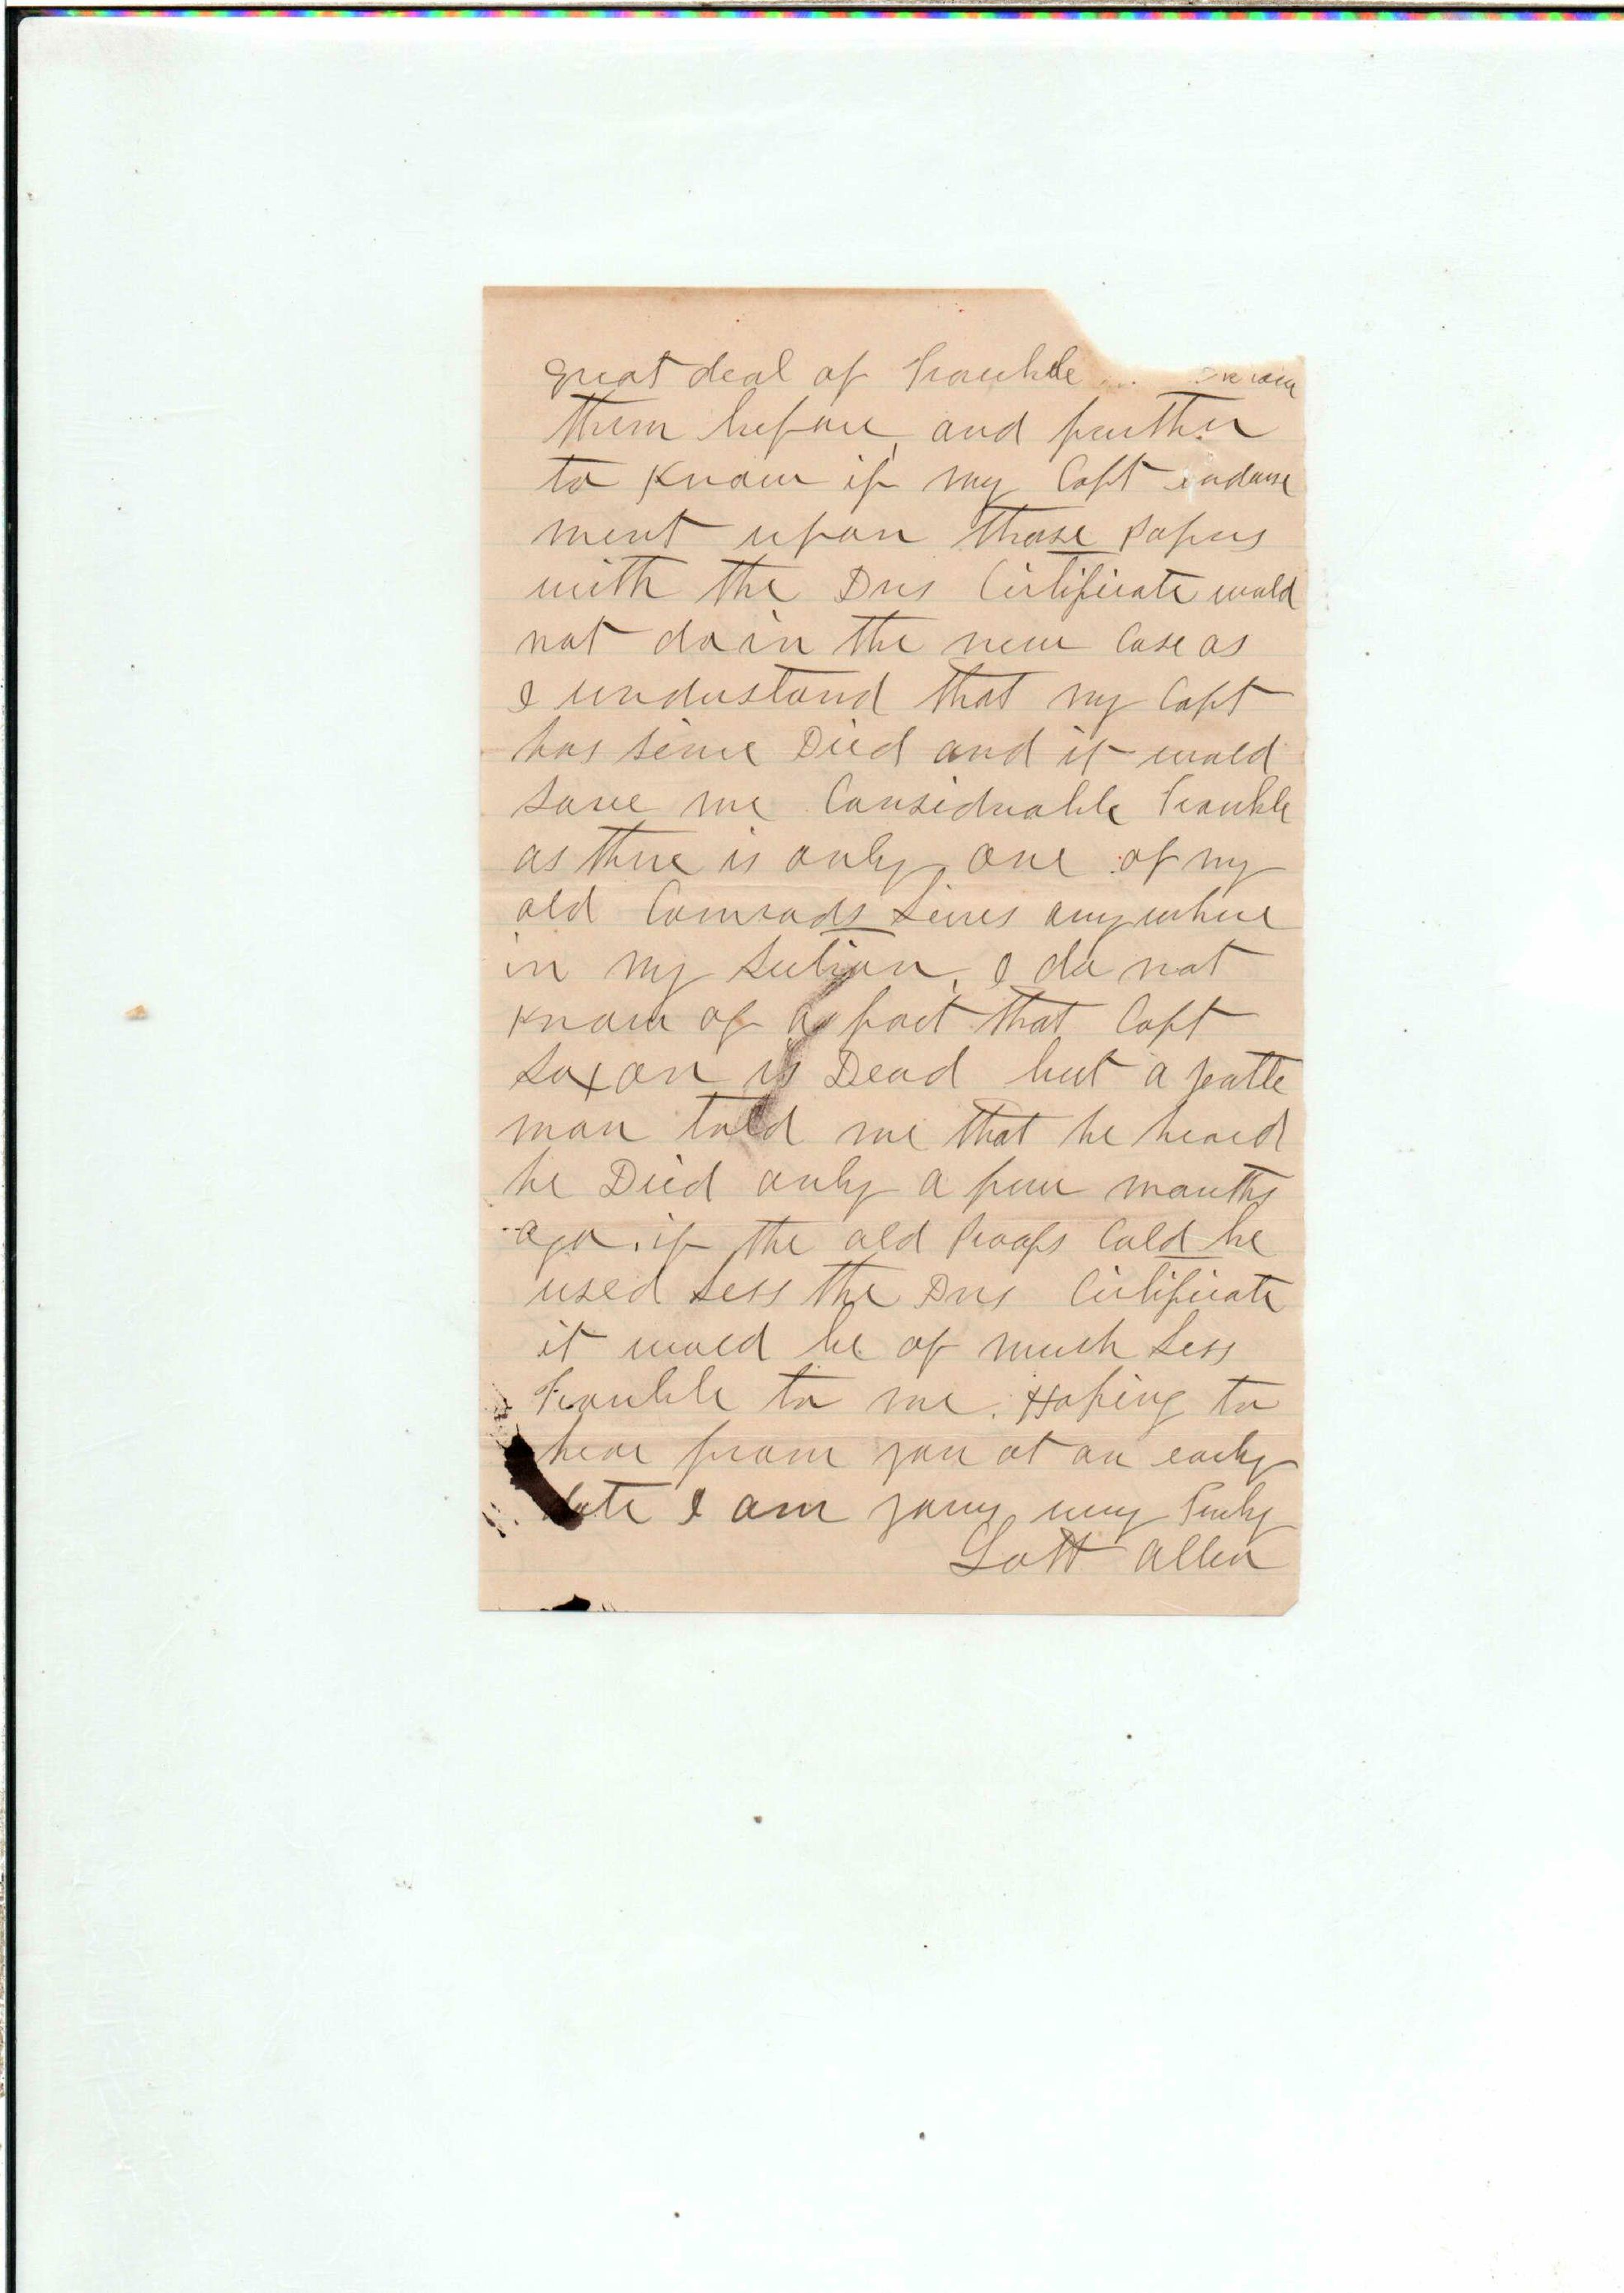 great deal of trouble
them before, and further
to Know if my Capt endorse
ment upon those papers
with the Drs Certificate would
not do in the new Case as
I understand that my Capt
has since Died and it would
save me Considerable Trouble
as there is only one of my
old Comrads Lives any where
in my section, I do not
Know of a fact that Capt
Saxon is Dead but a gentle
man told me that he heard
he Died only a few months
ago. if the old Proofs Could be
used Less the Drs Certificate
it would be of much Less
trouble to me. Hoping to
hear from you at an early
date I am yours very Truly
Lott Allen